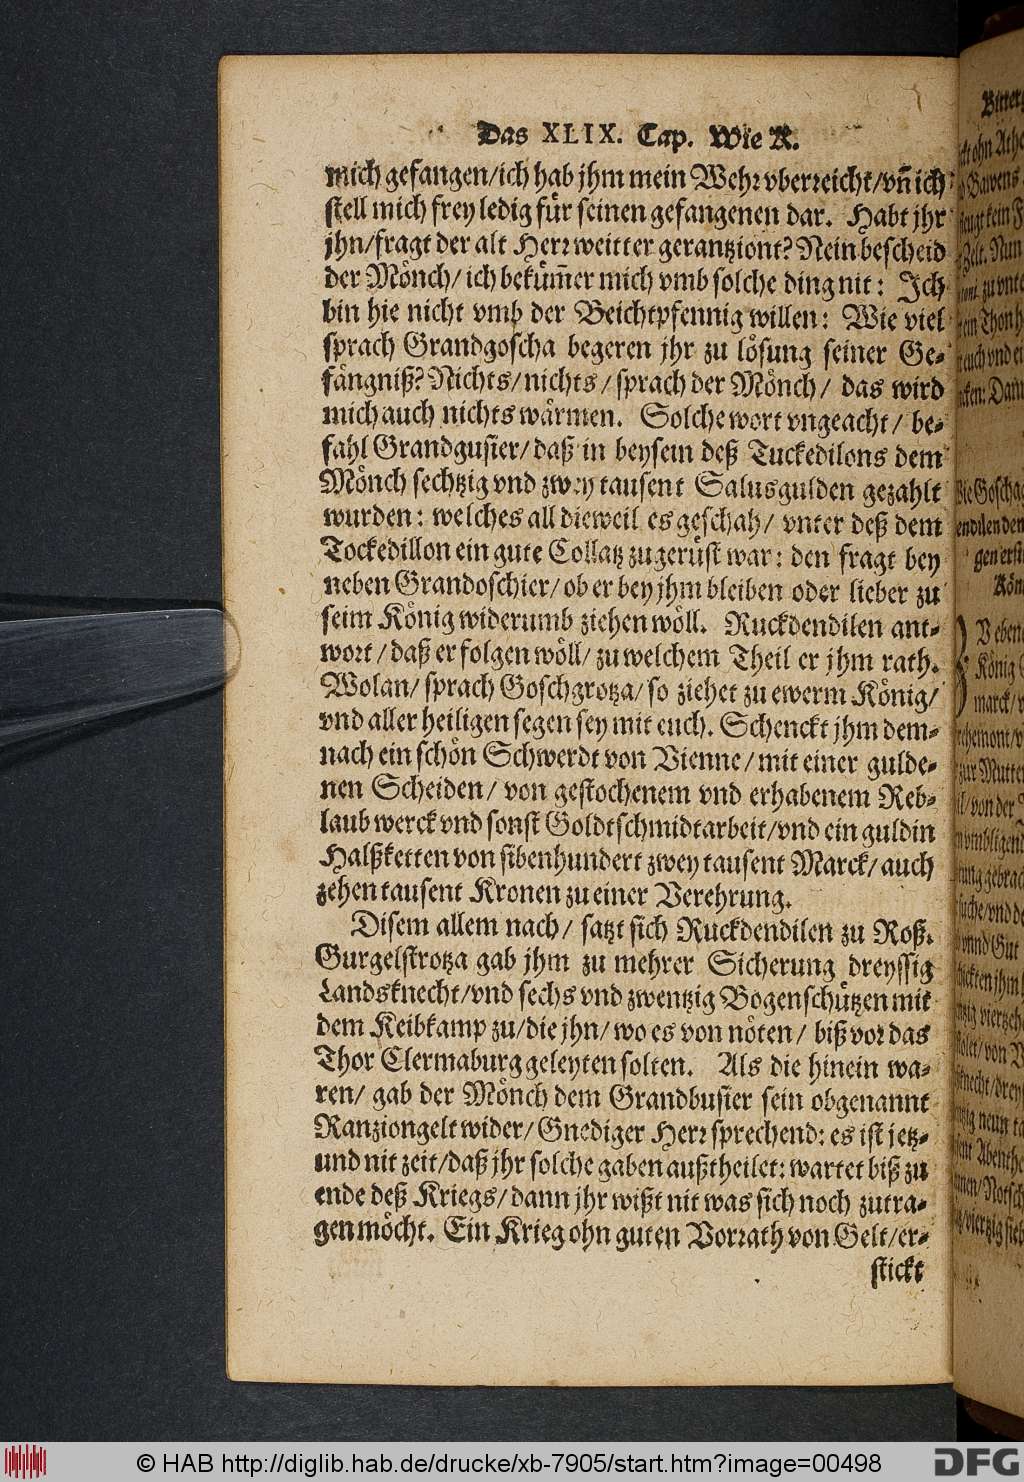 Das XLIX. Cap. Wie R.
mich gefangen/ich hab jhm mein Wehr vberreicht/vn̄ ich
stell mich frey ledig für seinen gefangenen dar. Habt jhr
jhn/fragt der alt Herr weitter gerantziont? Nein bescheid
der Mönch/ ich beküm̄er mich vmb solche ding nit: Ich
bin hie nicht vmb der Beichtpfennig willen: Wie viel
sprach Grandgoscha begeren jhr zu lösung seiner Ge-
fängniß? Nichts/nichts/ sprach der Mönch/ das wird
mich auch nichts wärmen. Solche wort vngeacht/ be-
fahl Grandgusier/ daß in beysein deß Tuckedilons dem
Mönch sechtzig vnd zwey tausent Salusgulden gezahlt
wurden: welches all dieweil es geschah/ vnter deß dem
Tockedillon ein gute Collatz zugerüst war: den fragt bey
neben Grandoschier/ ob er bey jhm bleiben oder lieber zu
seim König widerumb ziehen wöll. Ruckdendilen ant-
wort/ daß er folgen wöll/ zu welchem Theil er jhm rath.
Wolan/ sprach Goschgrotza/ so ziehet zu ewerm König/
vnd aller heiligen segen sey mit euch. Schenckt jhm dem-
nach ein schön Schwerdt von Vienne/ mit einer gulde-
nen Scheiden/ von gestochenem vnd erhabenem Reb-
laubwerck vnd sonst Goldtschmidtarbeit/vnd ein guldin
Halßketten von sibenhundert zwey tausent Marck/ auch
zehen tausent Kronen zu einer Verehrung.
Disem allem nach/ satzt sich Ruckdendilen zu Roß.
Gurgelstrotza gab jhm zu mehrer Sicherung dreyssig
Landsknecht/vnd sechs vnd zwentzig Bogenschützen mit
dem Keibkamp zu/die jhn/ wo es von nöten/ biß vor das
Thor Clermaburg geleyten solten. Als die hinein wa-
ren/ gab der Mönch dem Grandbusier sein obgenannt
Ranziongelt wider/ Gnediger Herr sprechend: es ist jetz-
und nit zeit/daß jhr solche gaben außtheilet: wartet biß zu
ende deß Kriegs/ dann jhr wißt nit was sich noch zutra-
gen möcht. Ein Krieg ohn guten Vorrath von Gelt/er-
stickt
© HAB http://diglib.hab.de/drucke/xb-7905/start.htm?image=00498
DFG